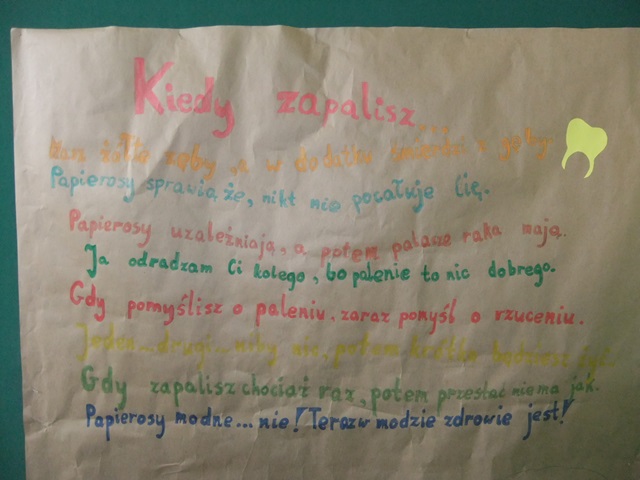 Kiedy zapalisz...
Masz żółte zęby, a w dodatku śmierdzi z gęby
Papierosy sprawią, że, nikt nie pocałuje Cię.
Papierosy uzależniają, a potem palacze raka mają.
Ja odradzam Ci kolego, bo palenie to nic dobrego.
Gdy pomyślisz o paleniu, zaraz pomyśl o rzuceniu.
Jeden... drugi... niby nic, potem krótko będziesz żyć.
Gdy zapalisz chociaż raz, potem przestać niema jak.
Papierosy modne... nie! Teraz w modzie zdrowie jest!